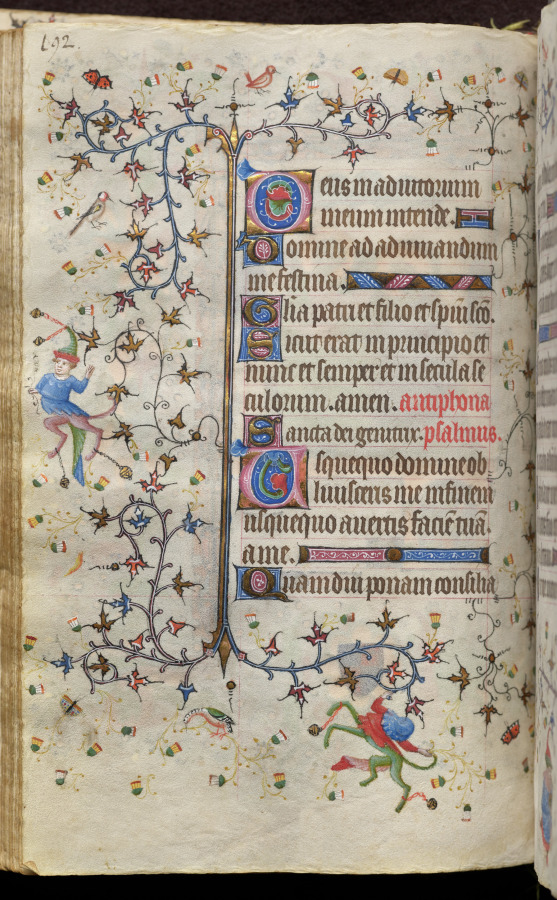 192.
Deus in adiutorium
meum intende.
Domine ad adiuuandum
me festina.
Glia patri et filio et spiui sco.
Sicut erat in principio et
nunc et semper et in secula se
culorum. amen. antiphona
Sancta dei genitrix. psalmus.
Usquequo domine ob
liuisceris me in finem
usquequo auertis facie tuā.
a me.
Quam diu ponam consilia